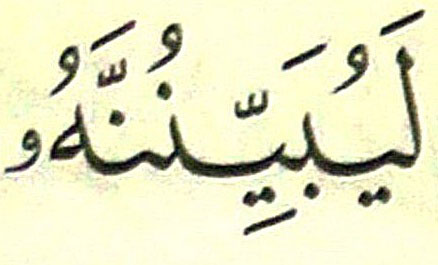 لَيُبَيِّنُنَّهُۥ